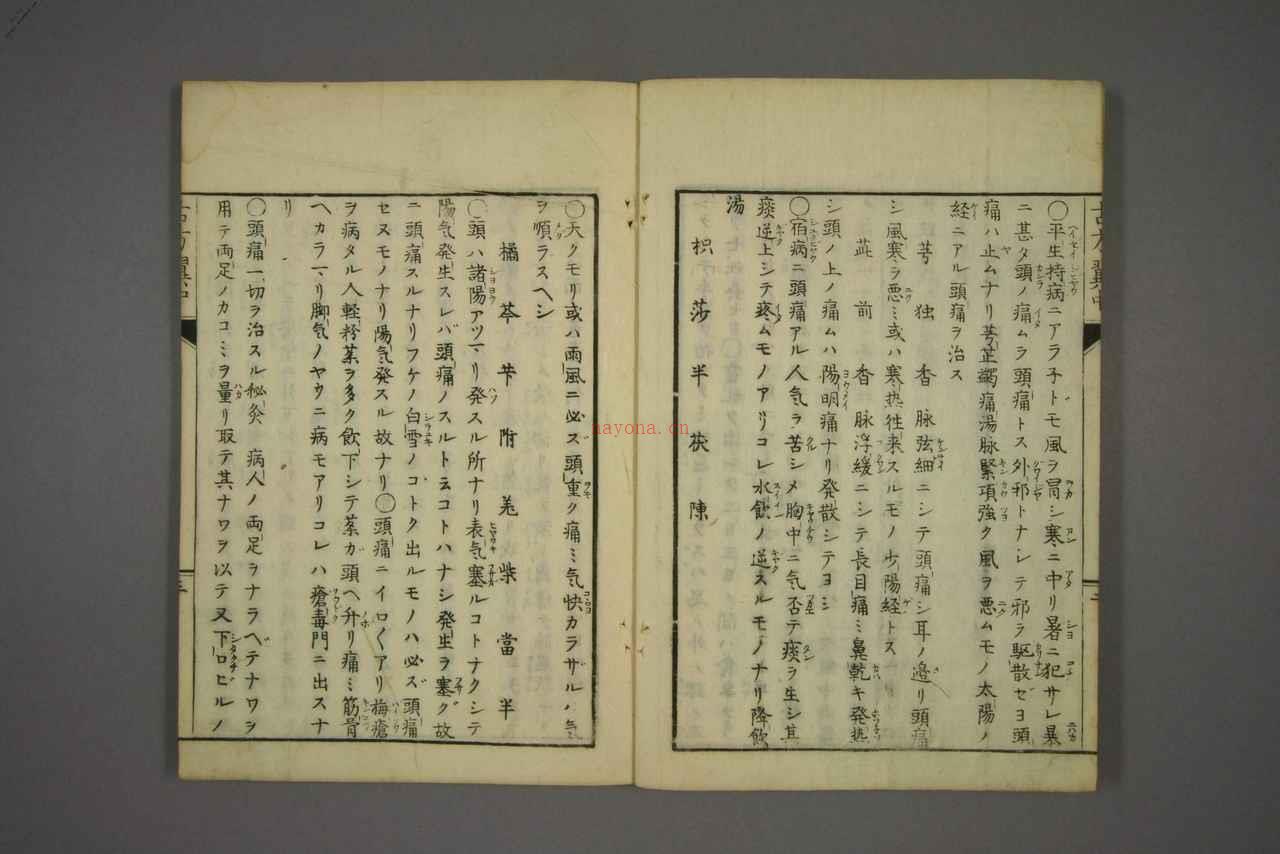 〇平生持病ニアラ子ドモ風ヲ冒シ寒ニ中リ暑ニ犯サレ暴
ニ甚タ頭ノ痛ムヲ頭痛トス外邪トナシテ邪ヲ駆散ゼヨ頭
痛ハ止ムナリ芎芷蠲痛湯脉緊項強ク風ヲ悪ムモノ太陽ノ
経ニアル頭痛ヲ治ス
芎 独 香 脉弦細ニシテ頭痛シ耳ノ邉リ頭痛
シ風寒ヲ悪ミ或ハ寒热徃来スルモノ少陽経トス
芷 前 香 脉浮緩ニシテ長目痛ミ鼻乾キ発热
シ頭ノ上ノ痛ムハ陽明痛ナリ発散シテヨシ
〇宿病ニ頭痛アル人気ヲ苦シメ胸中ニ気否テ痰ヲ生シ其
痰逆上シテ疼ムモノアリコレ水飲ノ逆スルモノナリ降飲
湯
枳 莎 半 茯 陳
〇天クモリ或ハ雨風ニ必ズ頭重ク痛ミ気快カラザルハ気
ヲ順ラスヘシ
橘 芩 芐 附 羗 柴 當 半
〇頭ハ諸陽アツマリ発スル所ナリ表気塞ルコトナクシテ
陽気発生スレバ頭痛ノスルト云コトハナシ発生ヲ塞グ故
ニ頭痛スルナリフケノ白雪ノゴトク出ルモノハ必ズ頭痛
セヌモノナリ陽気発スル故ナリ〇頭痛ニイロ〱アリ梅瘡
ヲ病タル人軽粉薬ヲ多ク飲下シテ薬ガ頭ヘ升リ痛ミ筋骨
ヘカラマリ脚気ノヤウニ病モアリコレハ瘡毒門ニ出スナ
リ
〇頭痛一切ヲ治スル秘灸 病人ノ両足ヲナラベテナワヲ
用テ両足ノカコミヲ量リ取テ其ナワヲ以テ又下口ビルノ
nayona.cn